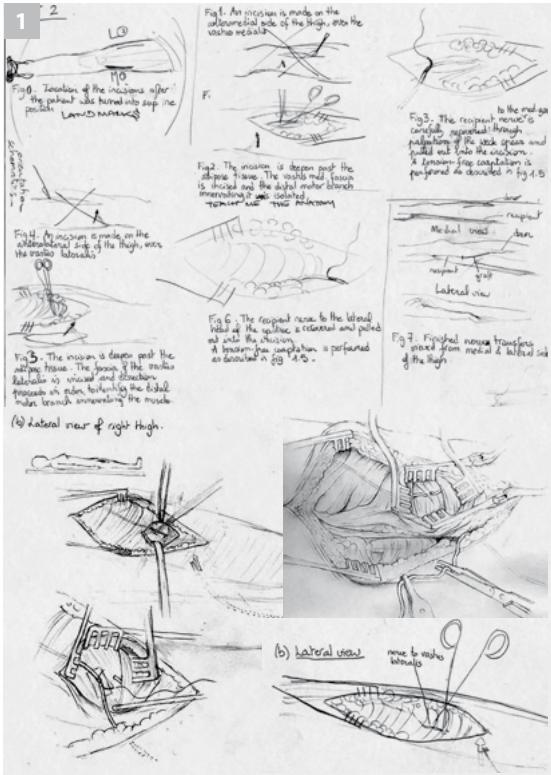 1
2
L
M
Fig 0. Location of the incisions after
the patient was turned into supine
position
LANDMARKS
Fig 1. An incision is made on the
anteromedial side of the thigh, over the
vastus medialis
Fig 2. The incision is deepen past the
adipose tissue. The vastus med. fascia
is incised and the distal motor branch
innervating it is isolated.
TEACH ME THE ANATOMY
to the med
Fig 3. The recipient nerve is
carefully recovered through
palpation of the
pulled out into the incision.
A tension-free coaptation is
performed as described in fig 1.5
orientation
schematics
Fig 4. An incision is made on the
anterolateral side of the thigh, over
the vastus lateralis
Fig 5. The incision is deepen past the
adipose tissue. The fascia of the vastus
lateralis is incised and dissection
proceeds in order to identify the distal
motor branch innervating the muscle.
Fig 6. The recipient nerve to the lateral
head of the is recovered and pulled
out into the incision.
A tension-free coaptation is performed
as described in fig 1.5.
donor
recipient
Medial view
donor
recipient
graft
Lateral view
Fig 7. Finished nerve transfers
viewed from medial & lateral side
of the thigh
(b) Lateral view of right thigh.
(b) Lateral view
nerve to vastus
lateralis